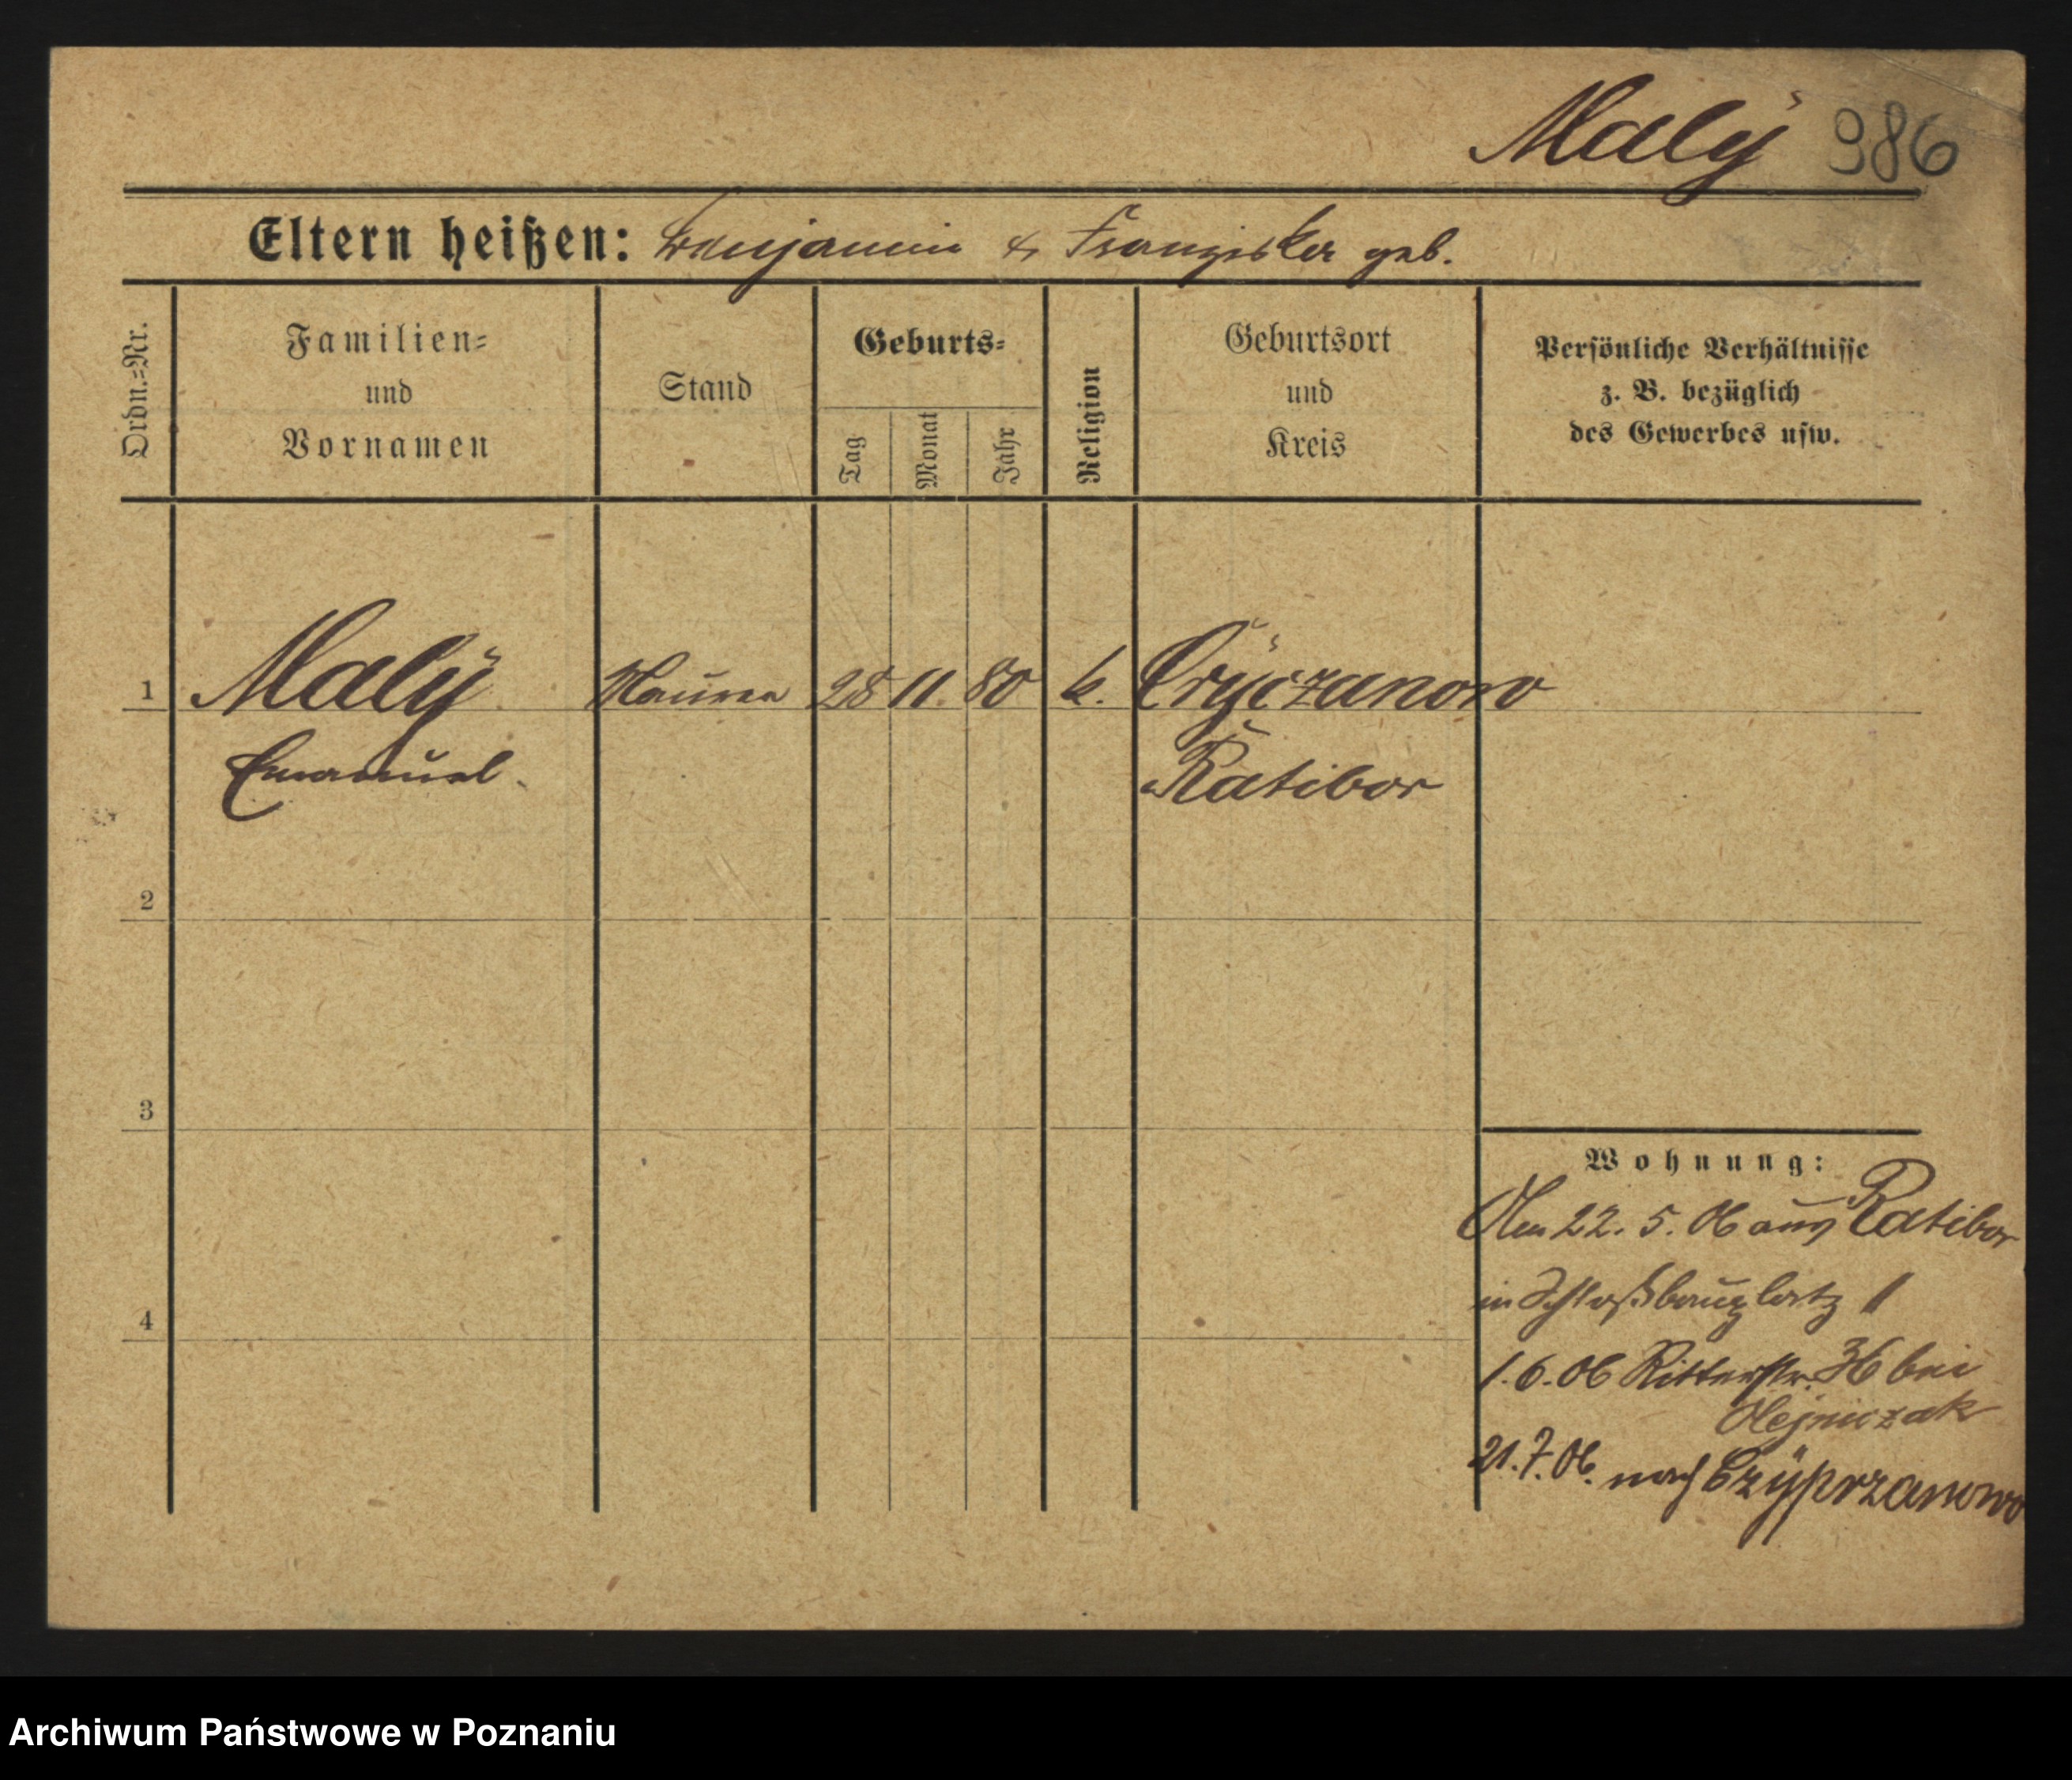 Malÿ 986
Eltern heißen: Benjamin & Franziska geb.
Ordn.=Nr.
Familien=
und
Vornamen
Stand
Geburts=
Tag
Monat
Jahr
Religion
Geburtsort
und
Kreis
Persönliche Verhältnisse
z. B. bezüglich
des Gewerbes usw.
1 Malÿ Maurer 28 11. 80 k.
Emanuel. Ratibor
2
3
4
Wohnung:
22. 5. 06 aus Ratibor
in Schloßbauplatz 1
1. 6. 06 Ritterstr. 36 bei
Olejniczak
21. 7. 06. nach Czÿprzanowo
Archiwum Państwowe w Poznaniu